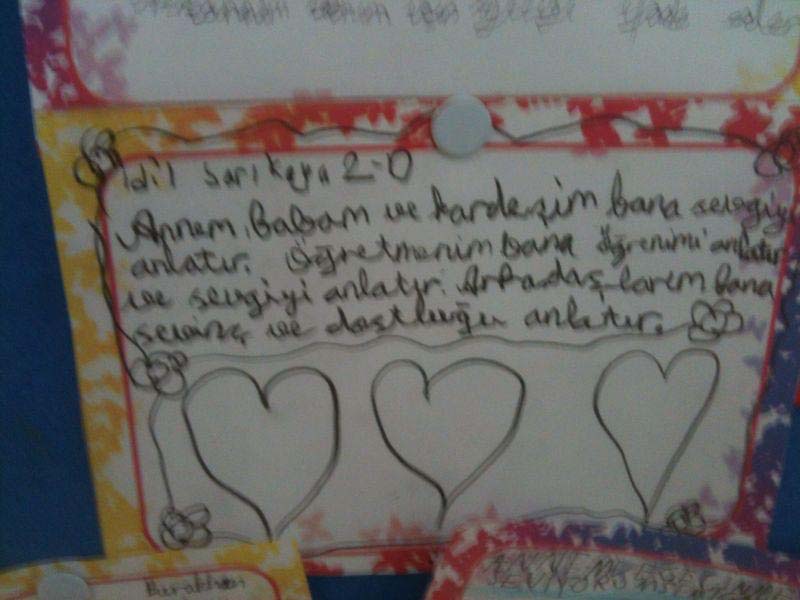 İdil Sarıkaya 2-D
Annem, Babam ve kardeşim bana sevgiyi
anlatır. Öğretmenim bana öğrenimi anlatır
ve sevgiyi anlatır. Arkadaşlarem bana
sevinç ve dostluğu anlatır.
Burakhan